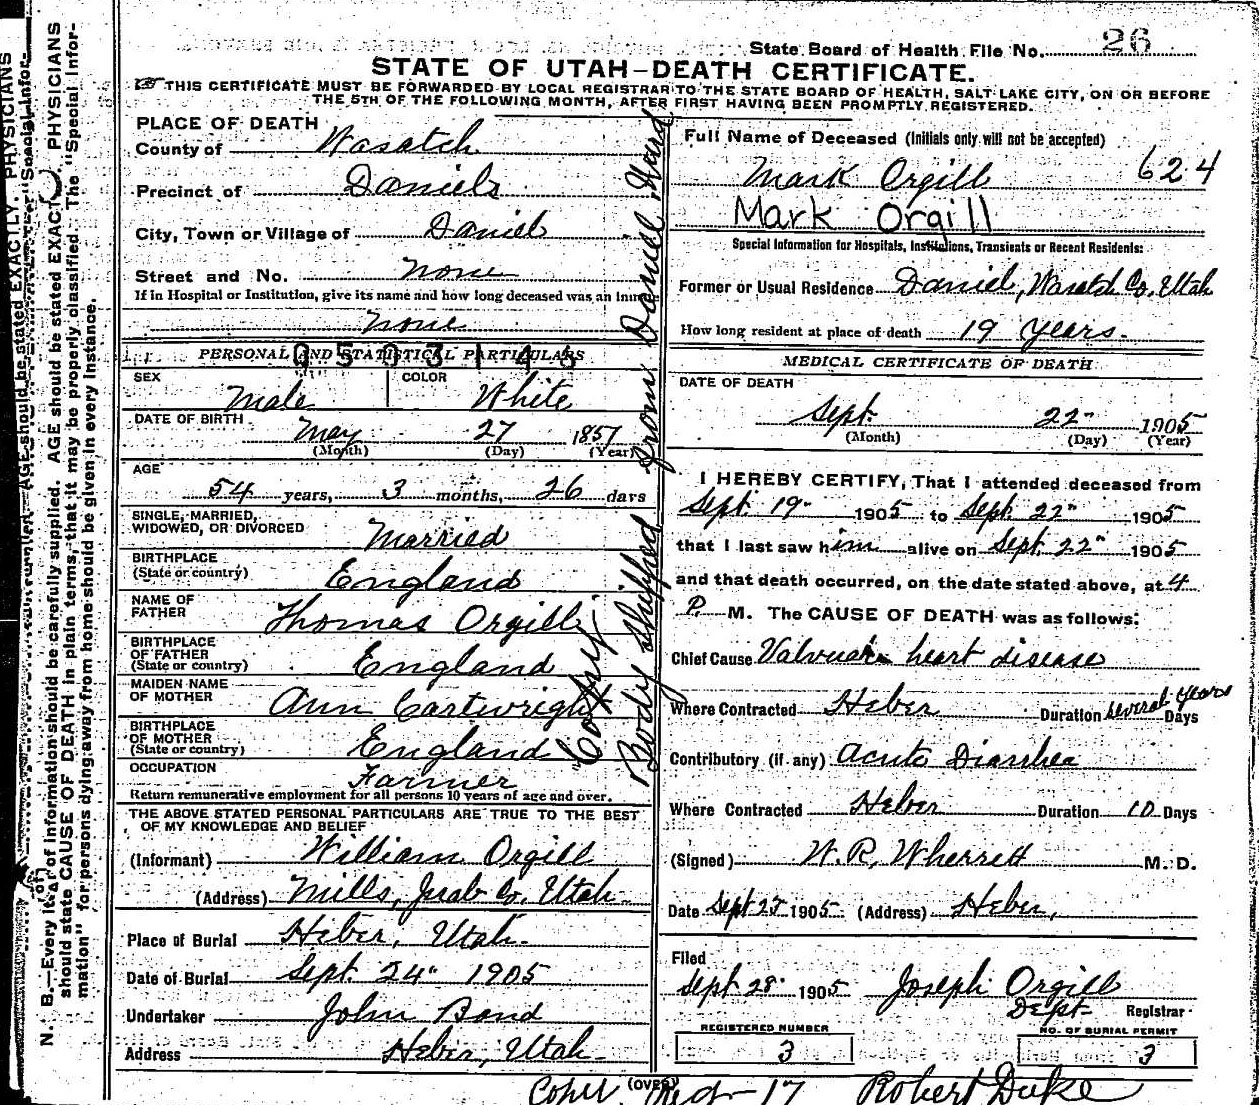 State Board of Health File No. 26
STATE OF UTAH—DEATH CERTIFICATE.
THIS CERTIFICATE MUST BE FORWARDED BY LOCAL REGISTRAR TO THE STATE BOARD OF HEALTH, SALT LAKE CITY, ON OR BEFORE
THE 5TH OF THE FOLLOWING MONTH, AFTER FIRST HAVING BEEN PROMPTLY REGISTERED.
PLACE OF DEATH
County of Wasatch
Precinct of Daniels
City, Town or Village of Daniel
Street and No. none
If in Hospital or Institution, give its name and how long deceased was an inmate
none
PERSONAL AND STATISTICAL PARTICULARS
0503148
SEX Male COLOR White
DATE OF BIRTH May 27 1851
(Month) (Day) (Year)
AGE
54 years, 3 months, 26 days
SINGLE, MARRIED,
WIDOWED, OR DIVORCED Married
BIRTHPLACE
(State or country) England
NAME OF
FATHER Thomas Orgill
BIRTHPLACE
OF FATHER
(State or country) England
MAIDEN NAME
OF MOTHER Ann Cartwright
BIRTHPLACE
OF MOTHER
(State or country) England
OCCUPATION Farmer
Return remunerative employment for all persons 10 years of age and over.
THE ABOVE STATED PERSONAL PARTICULARS ARE TRUE TO THE BEST
OF MY KNOWLEDGE AND BELIEF
(Informant) William Orgill
(Address) Mills, Juab Co. Utah
Place of Burial Heber, Utah.
Date of Burial Sept. 24" 1905
Undertaker John Bond
Address Heber, Utah
Body shipped from Daniel Ward
Full Name of Deceased (Initials only will not be accepted)
Mark Orgill 624
Mark Orgill
Special Information for Hospitals, Institutions, Transients or Recent Residents:
Former or Usual Residence Daniel, Wasatch Co. Utah
How long resident at place of death 19 years.
MEDICAL CERTIFICATE OF DEATH
DATE OF DEATH
Sept. 22" 1905
(Month) (Day) (Year)
I HEREBY CERTIFY, That I attended deceased from
Sept. 19" 1905 to Sept. 22" 1905
that I last saw him alive on Sept. 22" 1905
and that death occurred, on the date stated above, at 4
P. M. The CAUSE OF DEATH was as follows:
Chief Cause heart disease
Where Contracted Heber Duration several years Days
Contributory (if any) Acute Diarrhea
Where Contracted Heber Duration 10 Days
(Signed) W. R. Wherrett M. D.
Date Sept 1905 (Address) Heber,
Filed
Sept 28" 1905 Joseph Orgill
Dept. Registrar
REGISTERED NUMBER
3
NO. OF BURIAL PERMIT
3
(OVER)
17 Robert Duke
N. B.—Every item of information should be carefully supplied. AGE should be stated EXACTLY. PHYSICIANS
should state CAUSE OF DEATH in plain terms, that it may be properly classified. The "Special Infor-
mation" for persons dying away from home should be given in every instance.